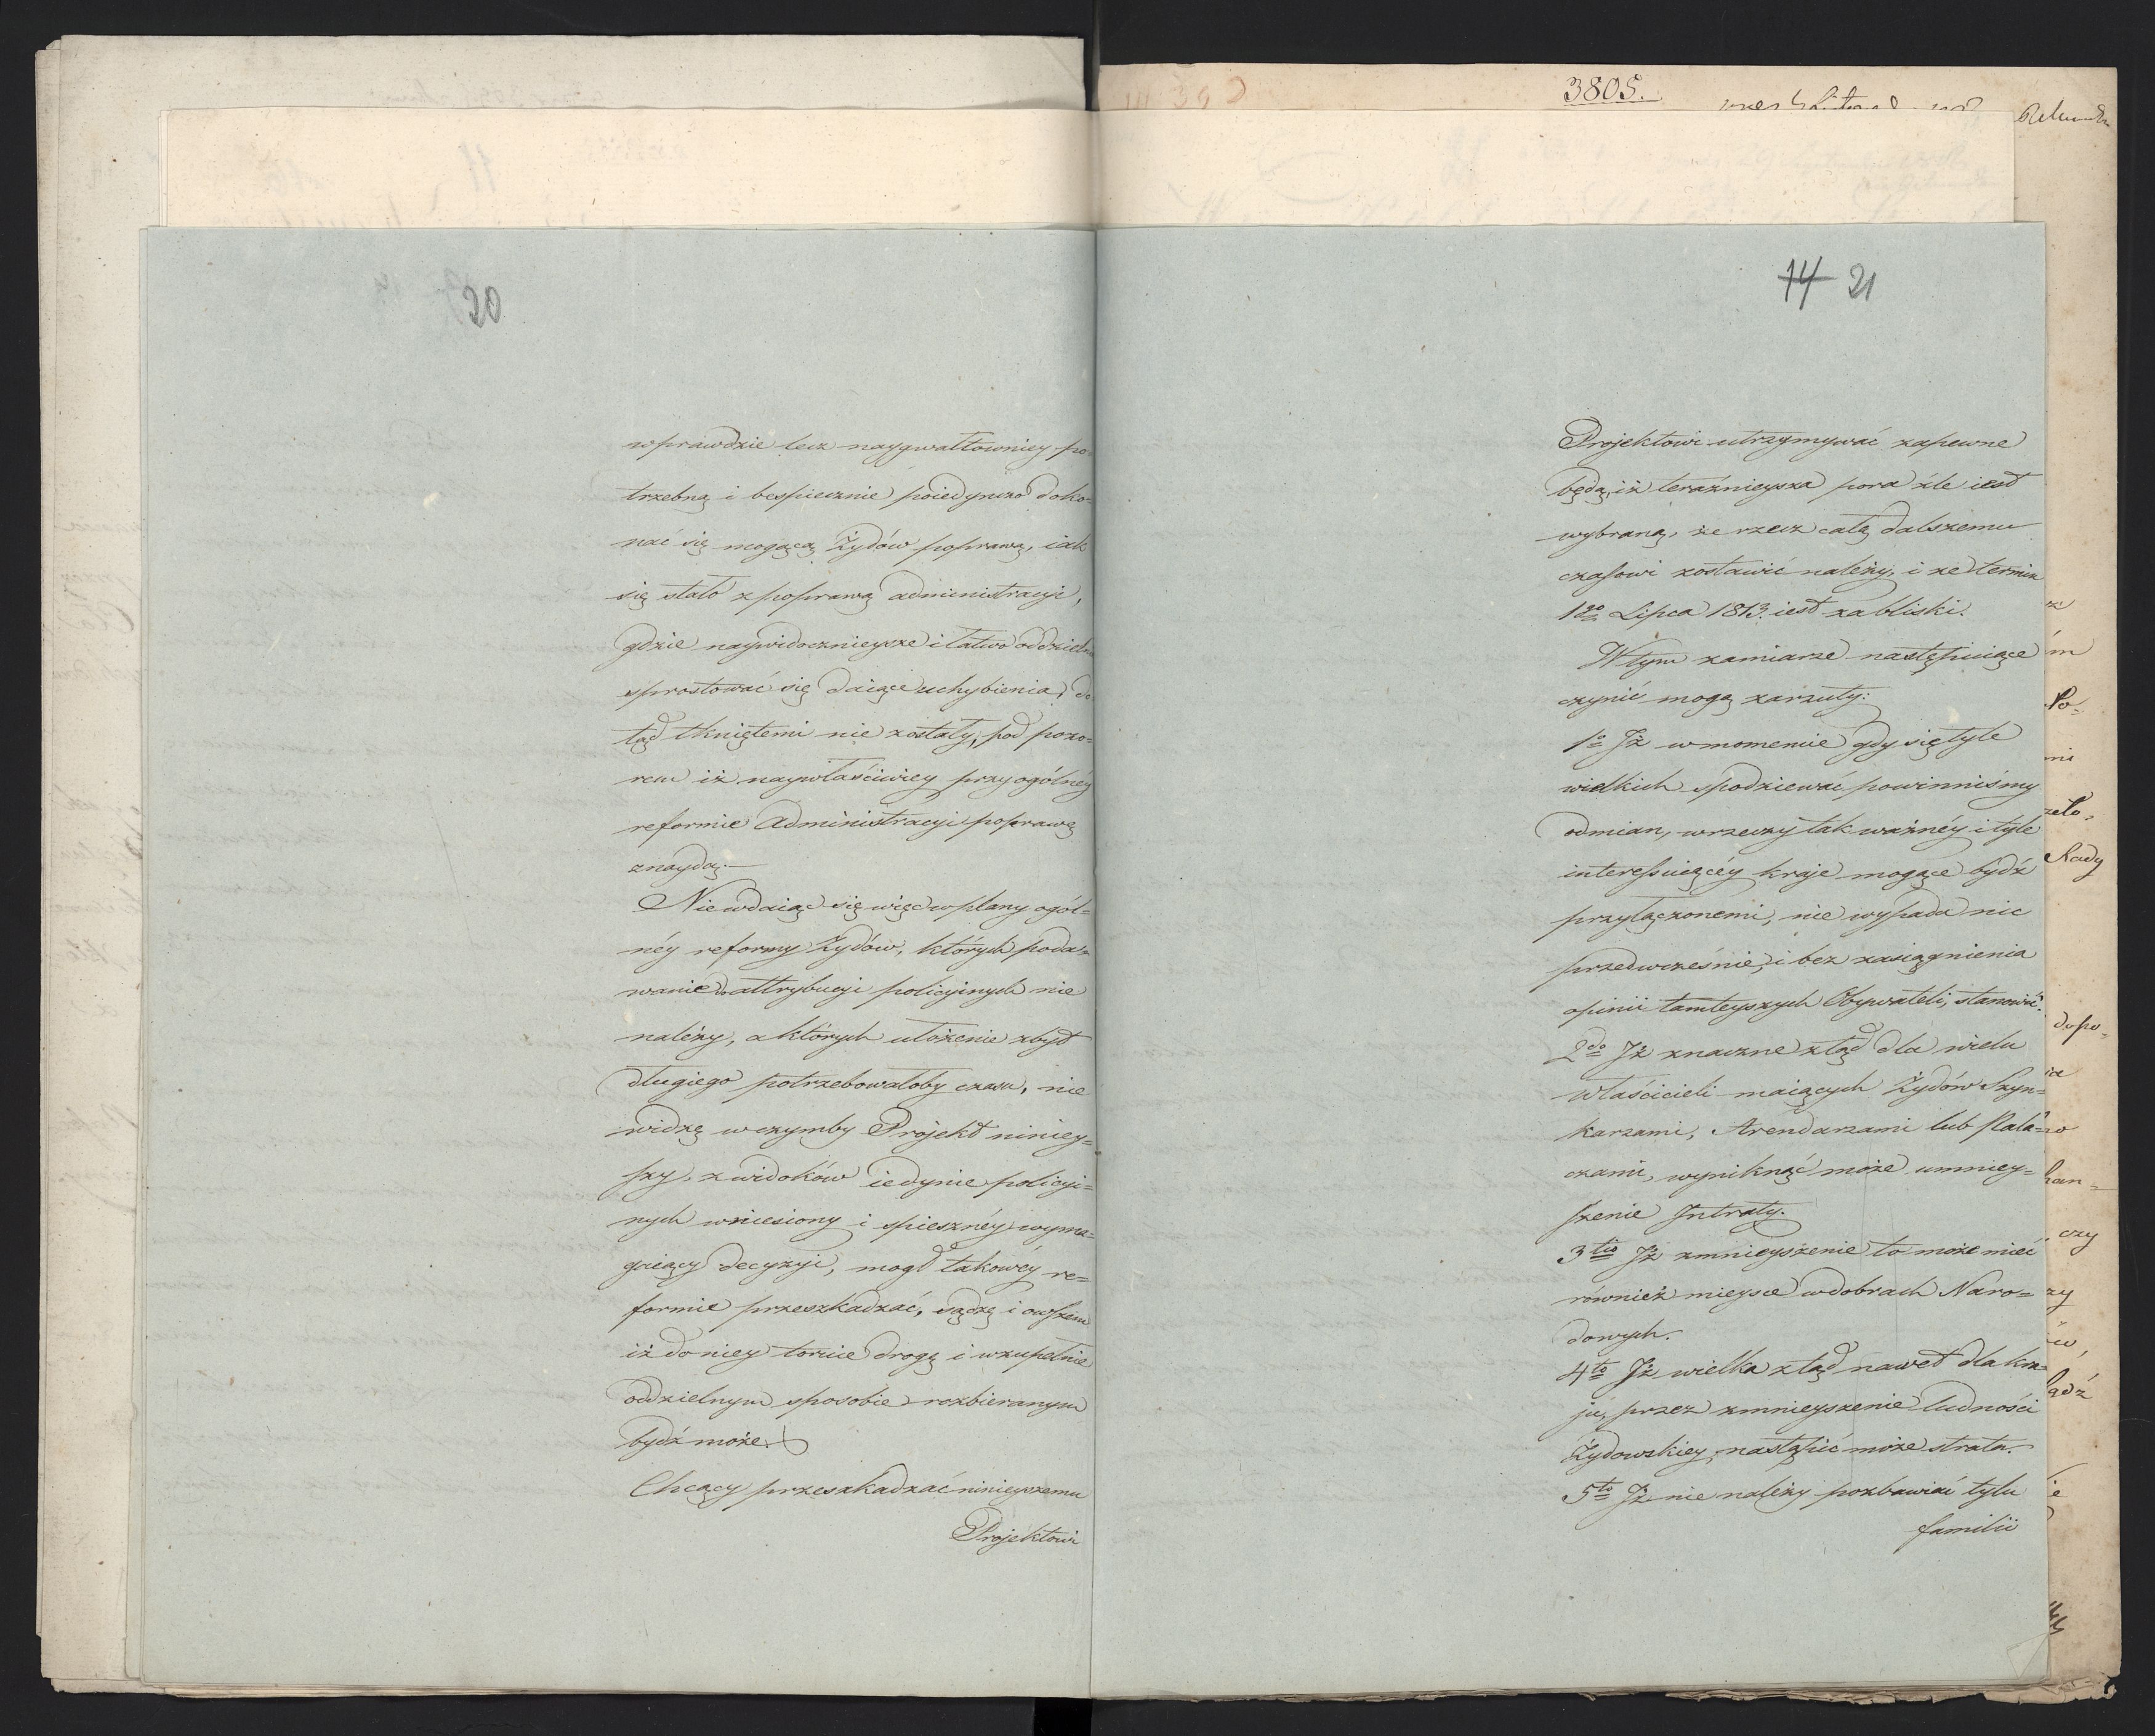 20
wprawdzie lecz naygwałtowniey po-
trzebną i bespiecznie poiedynczo doko-
nać się mogącą Żydów poprawą, iak
się stało z poprawą administracyi,
gdzie naywidocznieysze i łatwo oddzielnie
sprostować się daiące uchybienia, do
tąd tkniętemi nie zostały, pod pozo-
rem iż naywłaściwiey przy ogólnéy
reformie Administracyi poprawę
znaydą.—
Nie wdaiąc się więc w plany ogól-
néy reformy Żydów, których poda-
wanie do attrybucyi policyinych nie
należy, a których ułożenie zbyt
długiego potrzebowałoby czasu, nie
widzę w czymby Projekt niniey-
szy, z widoków iedynie policyi-
nych wniesiony i spieszney wyma-
gaiący decyzyi, mogł takowéy re-
formie przeszkadzać, sądzę i owszem
iż do niey toruie drogę i w zupełnie
oddzielnym sposobie rozbieranym
bydź może.
Chcący przeszkadzać ninieyszemu
Projektowi
3805.
14 21
Projektowi utrzymywać zapewne
będą, iż teraźnieysza pora źle iest
wybraną, że rzecz całą dalszemu
czasowi zostawić należy, i że termin
1go Lipca 1813. iest za bliski.
W tym zamiarze następuiące
czynić mogą zarzuty:
1o Iż w momencie gdy się tyle
wielkich spodziewać powinniśmy
odmian, w rzeczy tak ważnéy i tyle
interessuiącéy kraje mogące bydź
przyłączonemi, nie wypada nic
przedwcześnie, i bez zasiągnienia
opinii tamteyszych Obywateli, stanowić.
2do Iż znaczne ztąd dla wielu
właścicieli maiących Żydów Szyn-
karzami, Arendarzami lub Pala-
czami, wyniknąć może umniey-
szenie Intraty.
3tio Iż zmnieyszenie to może mieć
również mieysce w dobrach Naro-
dowych.
4to Iż wielka ztąd nawet dla kra-
ju, przez zmnieyszenie ludności
Żydowskiey, nastąpić może strata.
5to Iż nie należy pozbawiać tylu
familii